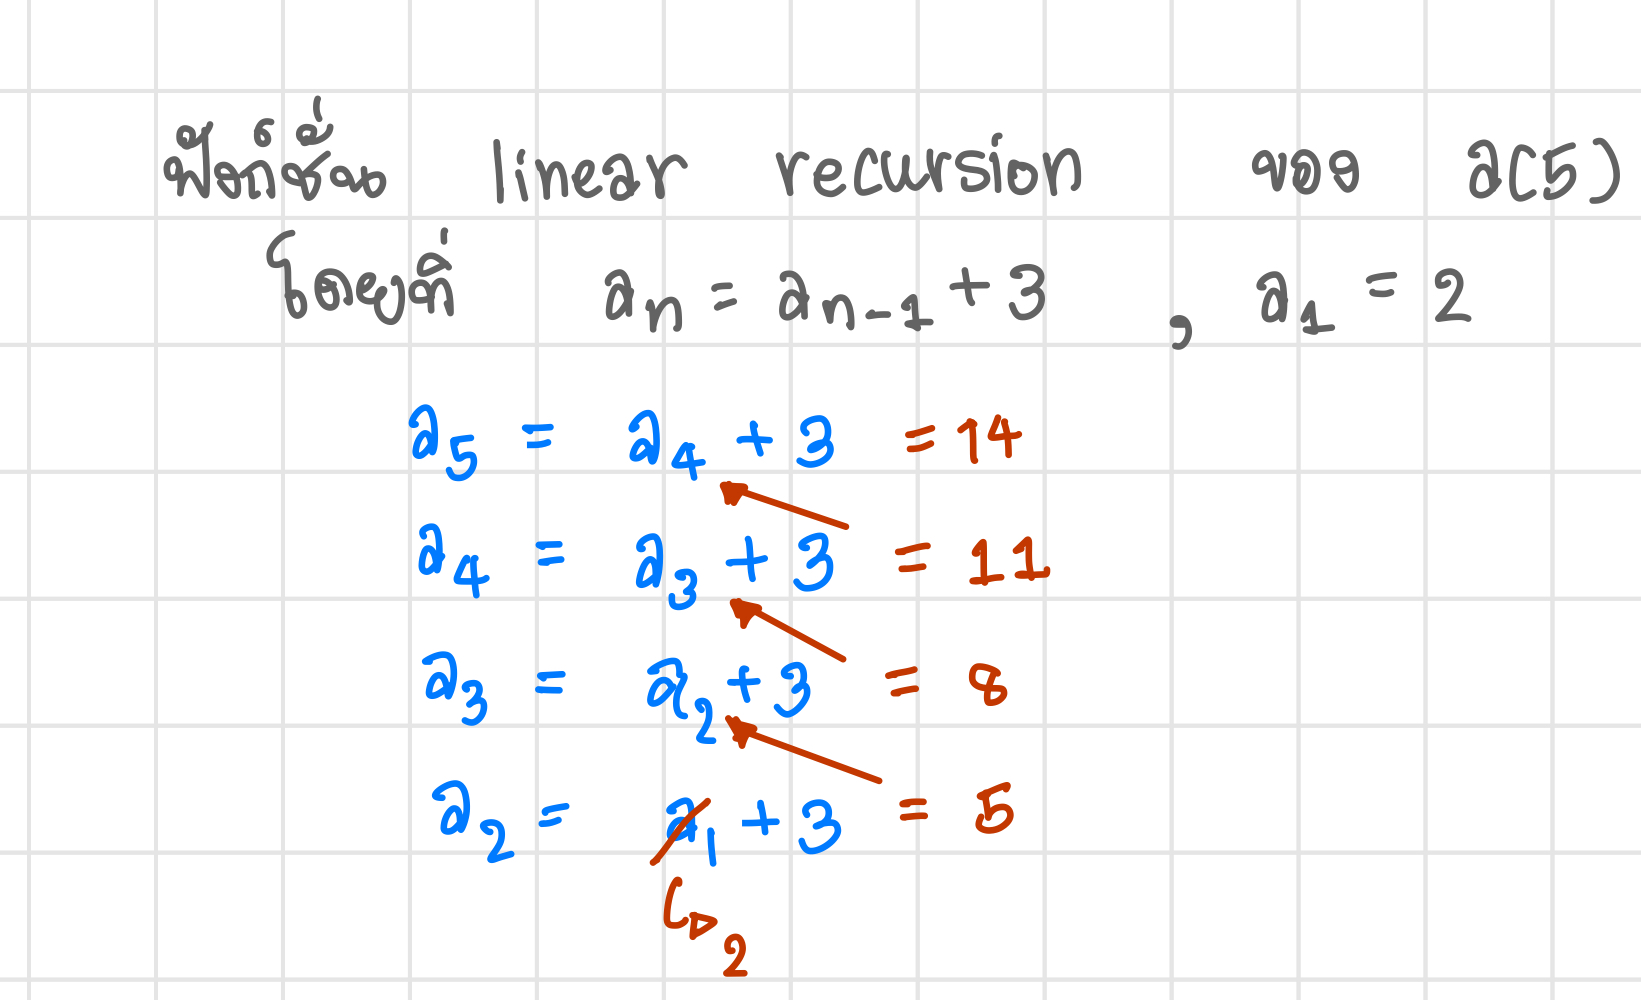 ฟังก์ชั่น linear recursion ของ a(5)
โดยที่ aₙ = aₙ₋₁ + 3 , a₁ = 2
a₅ = a₄ + 3 = 14
a₄ = a₃ + 3 = 11
a₃ = a₂ + 3 = 8
a₂ = a₁ + 3 = 5
2